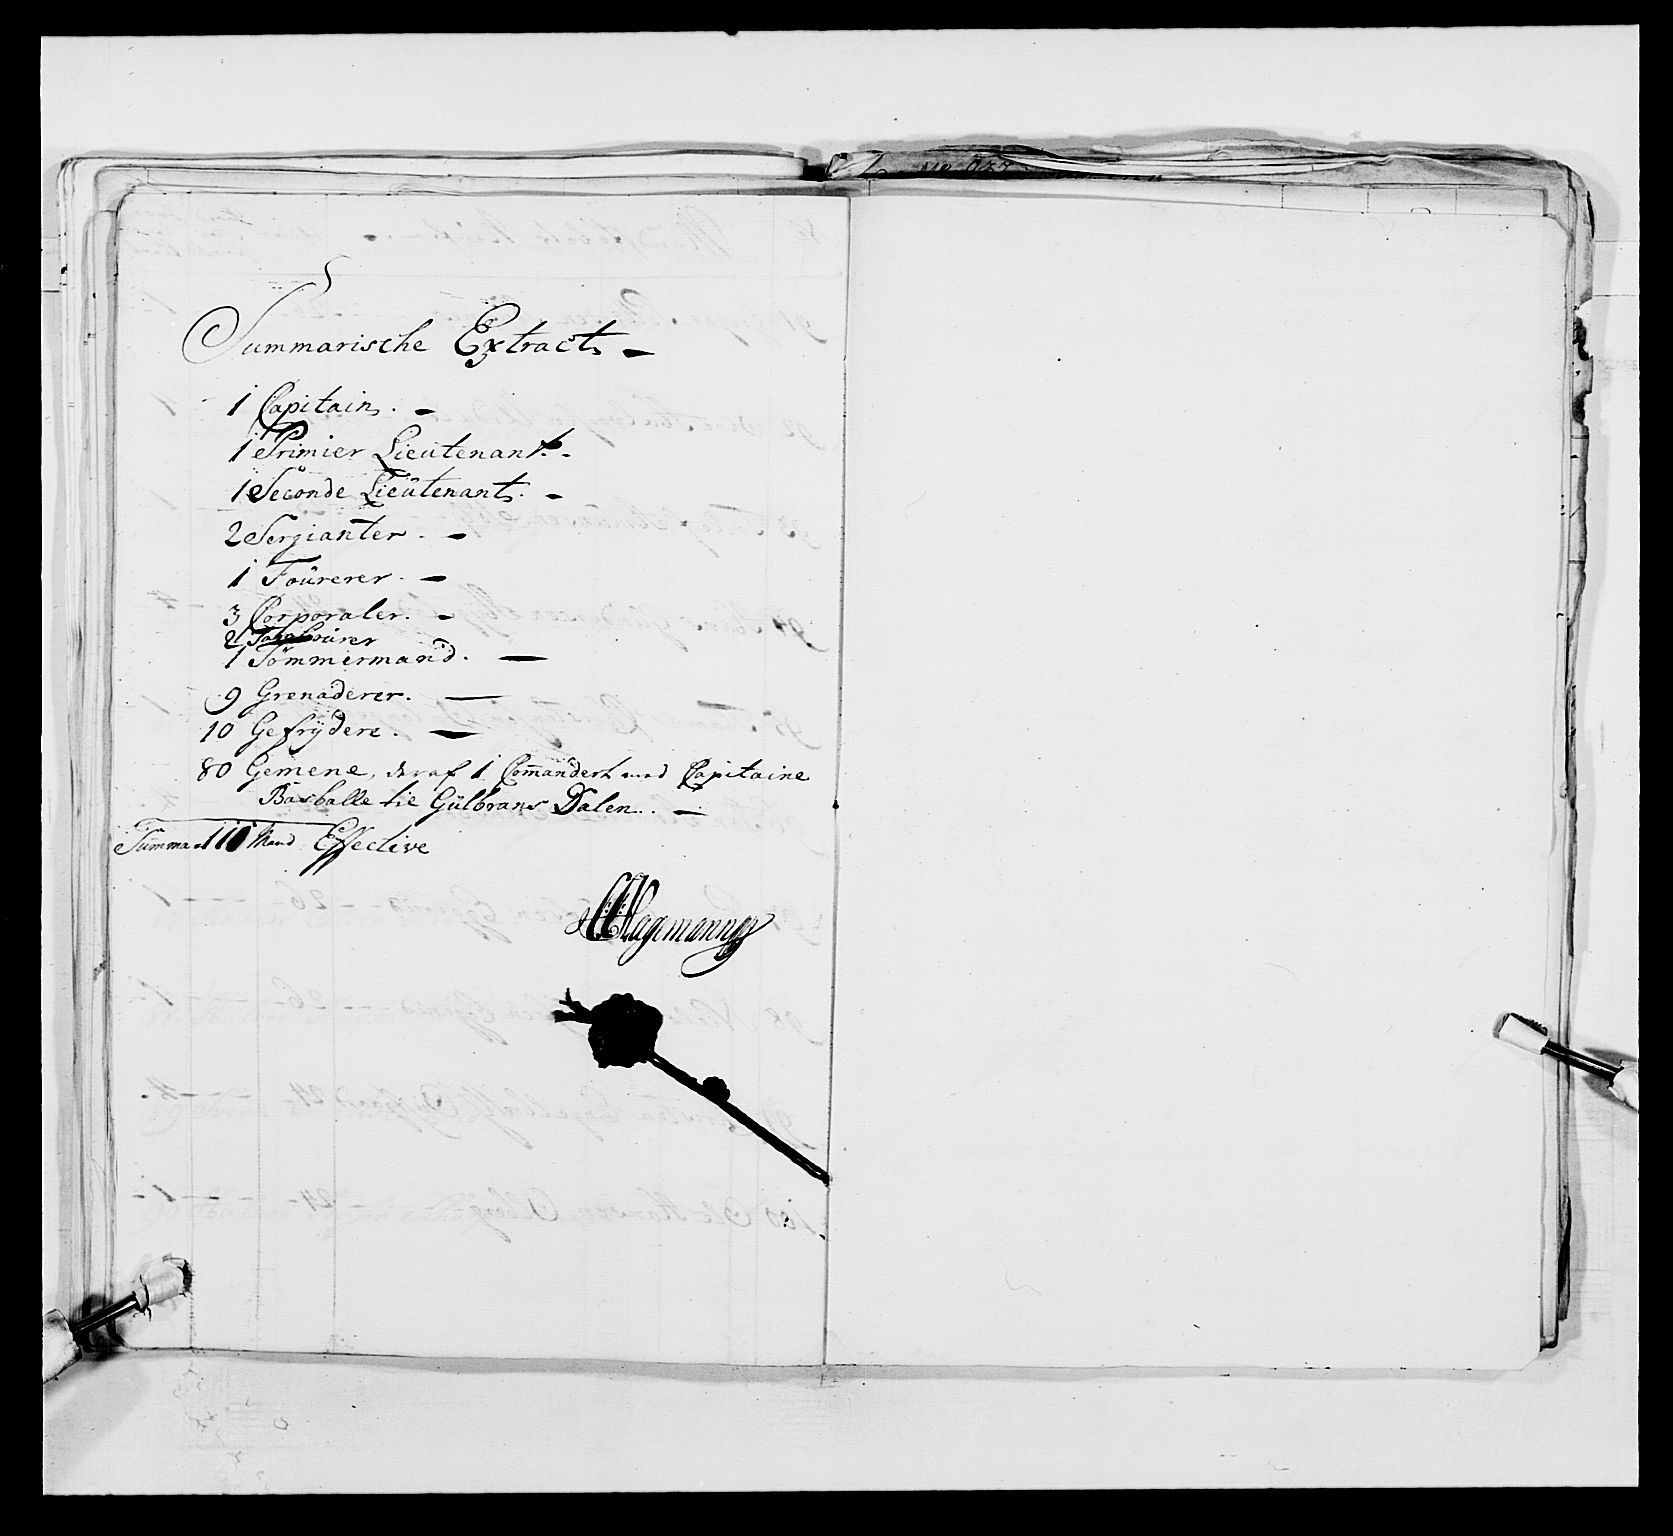 Summarische Extract
1 Capitain. -
1 Primier Lieutenant. -
1 Seconde Lieutenant. -
2 Sergianter. -
1 Foürerer. -
3 Corporaler. -
2 Tambourer
1 Tömmermand. -
9 Grenaderer. -
10 Gefrÿdere. -
80 Gemene, deraf 1 Commandert med Capitaine
Basballe tie Gülbrans Dalen. -
Summa 110 Mand Effective
Wagemanng